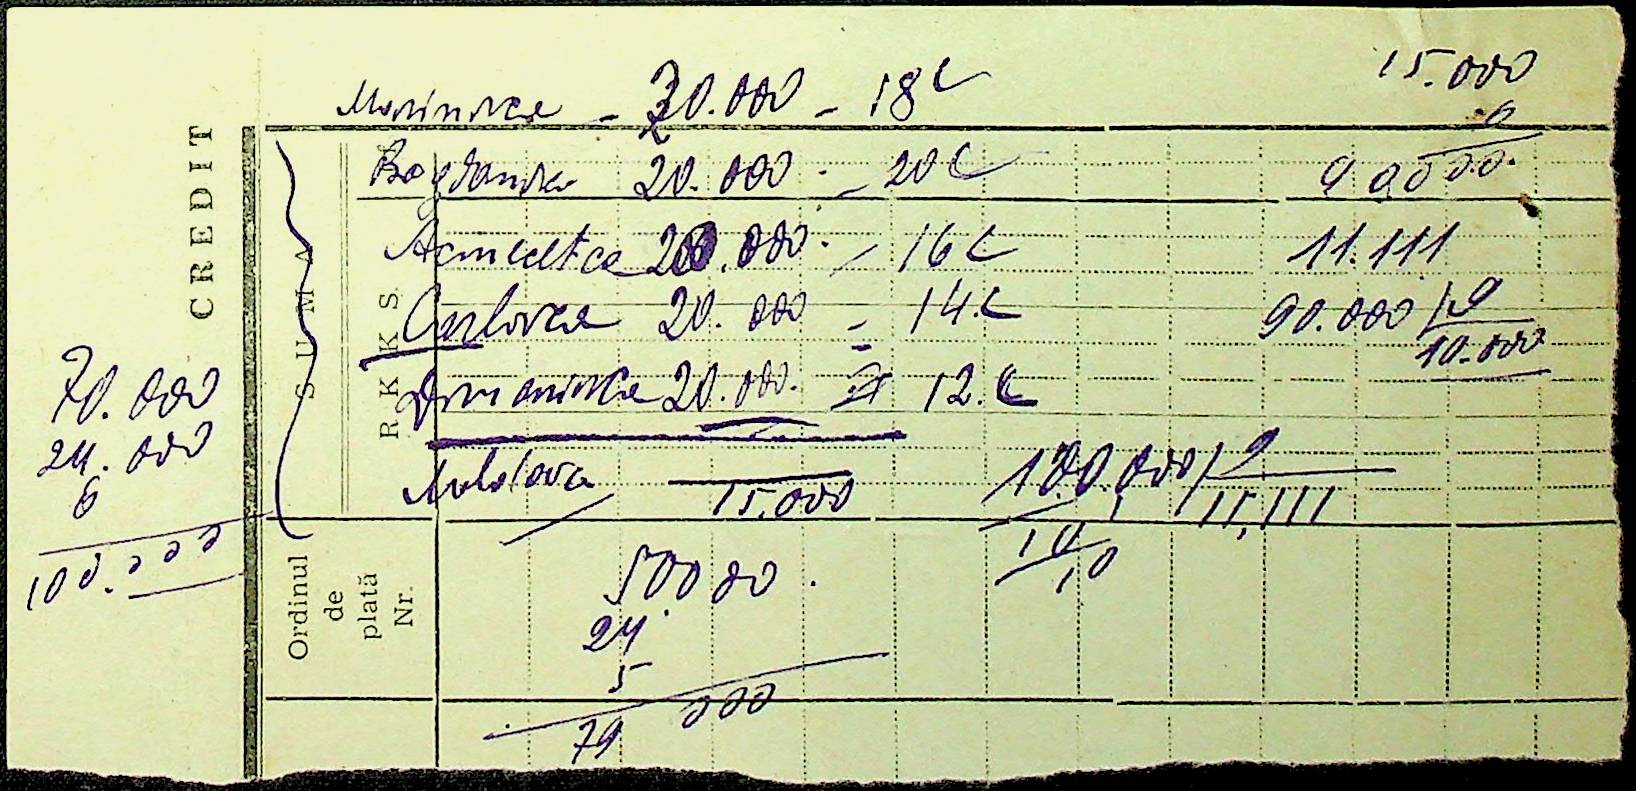 15.000
Marinovca - 20.000 - 18 C
9
Bogdanovca 20.000. - 20 C
90000.
20.000. - 16 C
11.111
Carlovca 20.000 = 14. C
90.000 / 9
10.000
Dumanovca 20.000. = 12. C
Mostova
15.000
100.000 / 9
11,111
10
10
CREDIT
SUMA
RKKS
70.000
24.000
6
100.000
Ordinul
de
plată
Nr.
50000.
24
5
79 000